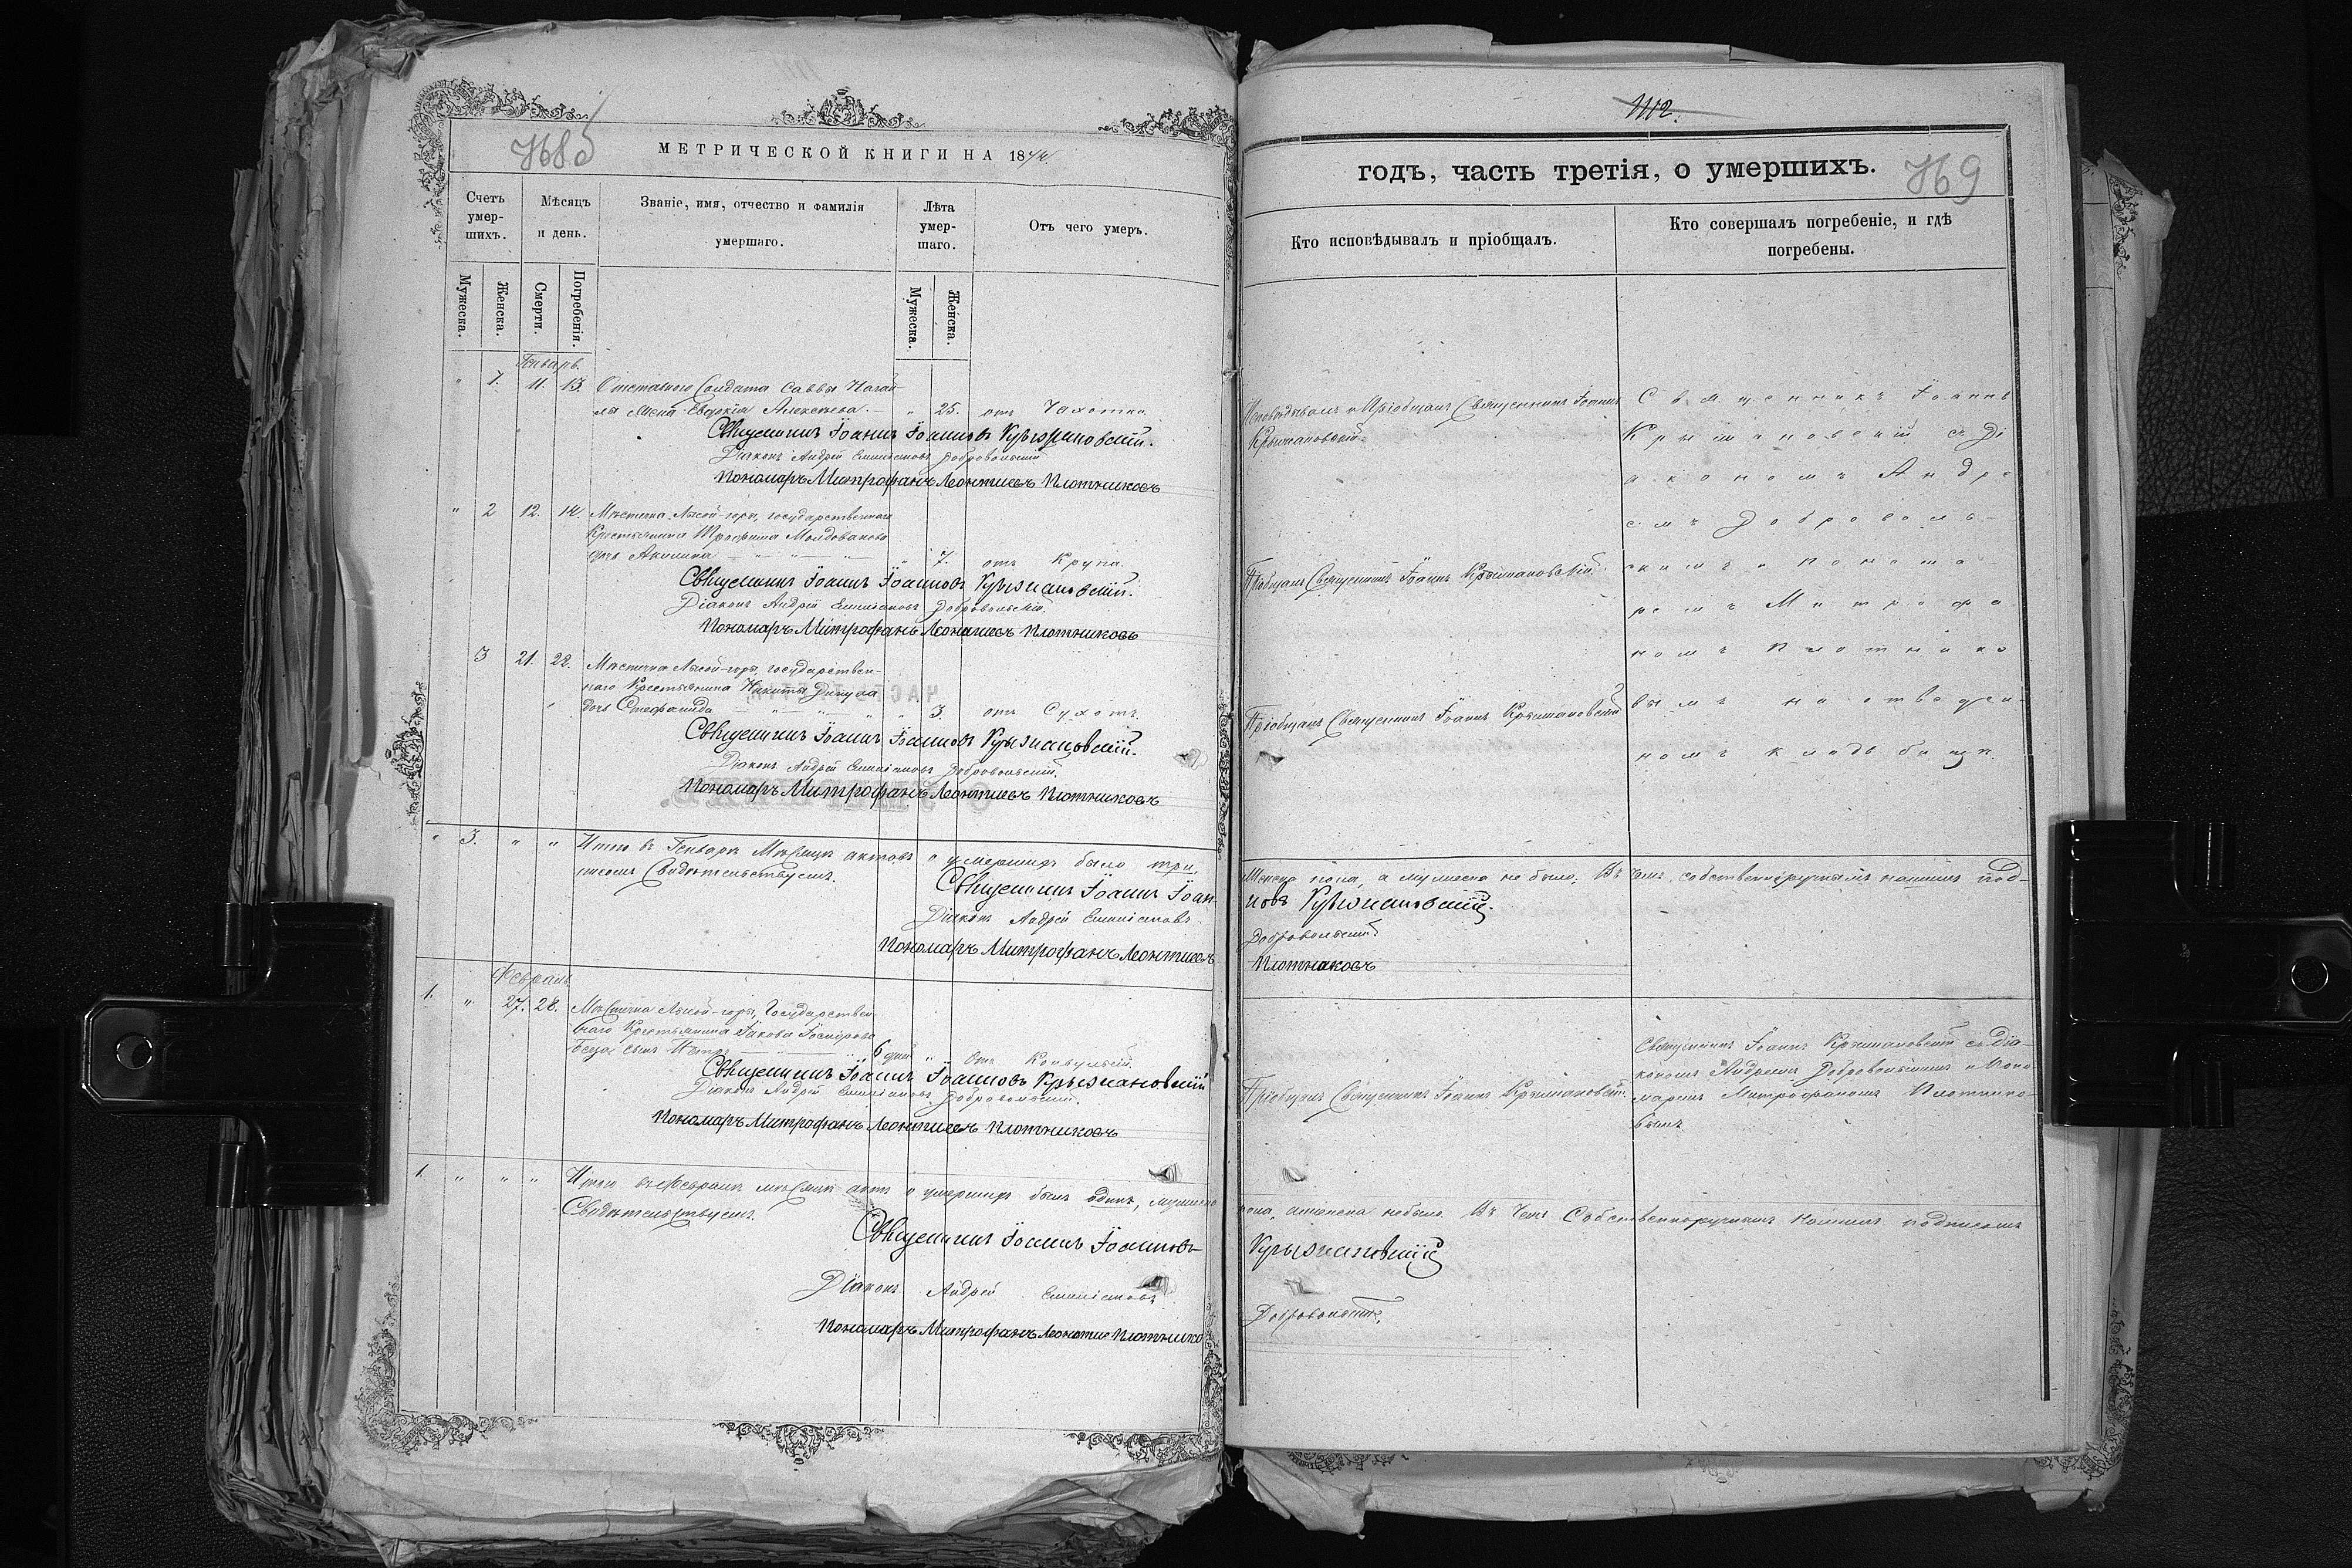 МЕТРИЧЕСКОЙ КНИГИ НА 18
Счетъ умер-шихъ.
Мѣсяцъ и день.
Званіе, имя, отчество и фамилія умершаго.
Лѣта умер-шаго.
Отъ чего умеръ.
Мужеска.
Женска.
Смерти.
Погребенія.
Мужеска.
Женска.
Генварь.
" 1. 11. 13. Отставного Солдата Саввы
жена Евдокія Алексѣева. — " 25. отъ Чахотки.
Священникъ Іоаннъ Іоанновъ Крыжановскій.
Діаконъ Андрей Емиліановъ Добровольскій
Пономарь Митрофанъ Леонтіевъ Плотниковъ
" 2 12. 14. Мѣстечка Лысой-горы, государственнаго
Крестьянина Трофима Молдованова
дочь Акилина " 7. отъ Крупа.
Священникъ Іоаннъ Іоанновъ Крыжановскій.
Діаконъ Андрей Емиліановъ Добровольскій.
Пономарь Митрофанъ Леонтіевъ Плотниковъ
3 21. 22. Мѣстечка Лысой-горы, государствен-
наго Крестьянина Никиты
дочь Стефанида " 3. отъ Сухотъ.
Священникъ Іоаннъ Іоанновъ Крыжановскій.
Діаконъ Андрей Емиліановъ Добровольскій.
Пономарь Митрофанъ Леонтіевъ Плотниковъ
" 3. " " Итого въ Генварѣ Мѣсяцѣ актовъ о умершихъ было три,
писомъ Свидѣтельствуемъ.
Священникъ Іоаннъ Іоан-
Діаконъ Андрей Емиліановъ
Пономарь Митрофанъ Леонтіевъ
Февраль
1. " 27. 28. Мѣстечка Лысой-горы, Государствен-
наго Крестьянина Іакова
сынъ Петръ 6 дней " отъ Конвульсій.
Священникъ Іоаннъ Іоанновъ Крыжановскій
Діаконъ Андрей Емиліановъ Добровольскій.
Пономарь Митрофанъ Леонтіевъ Плотниковъ
1. " " " Итого въ Февралѣ мѣсяцѣ актъ о умершихъ былъ одинъ, мужеска
Свидѣтельствуемъ.
Священникъ Іоаннъ Іоанновъ
Діаконъ Андрей Емиліановъ
Пономарь Митрофанъ Леонтіе Плотнико
годъ, часть третія, о умершихъ.
Кто исповѣдывалъ и пріобщалъ.
Кто совершалъ погребеніе, и гдѣ погребены.
Исповѣдывалъ и Пріобщалъ Священникъ Іоаннъ
Крыжановскій.
Пріобщалъ Священникъ Іоаннъ Крыжановскій.
Пріобщалъ Священникъ Іоаннъ Крыжановскій
Священникъ Іоаннъ
Крыжановскій съ Ді
акономъ Андре
емъ Доброволь-
скимъ и Понома
ремъ Митрофа
номъ Плотнико
вымъ на отведен-
номъ кладбищѣ.
Женска пола, а мужеска не было; Въ чемъ собственноручнымъ нашимъ под-
новъ Крыжановскій.
Добровольскій
Плотниковъ
Пріобщалъ Священникъ Іоаннъ Крыжановскій.
Священникъ Іоаннъ Крыжановскій съ Діа-
кономъ Андреемъ Добровольскимъ и Поно
маремъ Митрофаномъ Плотнико-
вымъ
пола, а женска небыло. Въ Чемъ Собственноручнымъ Нашимъ подписомъ
Крыжановскій
Добровольскій.